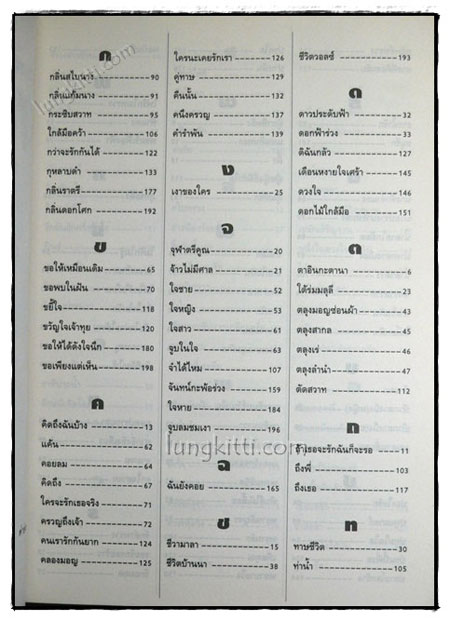 ก
กลิ่นสไบนาง 90
กลิ่นแก้มนาง 91
กระซิบสวาท 95
ใกล้มือคว้า 106
กว่าจะรักกันได้ 122
กุหลาบดำ 133
กลิ่นราตรี 177
กลิ่นดอกโศก 192
ข
ขอให้เหมือนเดิม 65
ขอพบในฝัน 70
ขยี้ใจ 118
ขวัญใจเจ้าทุย 120
ขอให้ได้ดังใจนึก 180
ขอเพียงแต่เห็น 198
ค
คิดถึงฉันบ้าง 13
แค้น 62
คอยลม 64
คิดถึง 67
ใครจะรักเธอจริง 71
ครวญถึงเจ้า 72
คนเรารักกันยาก 124
คลองมอญ 125
ใครนะเคยรักเรา 126
คู่ทาษ 129
คืนนั้น 132
คนึงครวญ 137
คำรำพัน 139
ง
เงาของใคร 25
จ
จุฬาตรีคูณ 20
จ้าวไม่มีศาล 21
ใจชาย 52
ใจหญิง 53
ใจสาว 61
จูบในใจ 63
จำได้ไหม 107
จันทน์กะพ้อร่วง 159
ใจหาย 184
จูบลมชมเงา 196
ฉ
ฉันยังคอย 165
ช
ชีวามาลา 15
ชีวิตบ้านนา 38
ชีวิตวอลซ์ 193
ด
ดาวประดับฟ้า 32
ดอกฟ้าร่วง 33
ดิฉันกลัว 127
เดือนหงายใจเศร้า 145
ดวงใจ 146
ดอกไม้ใกล้มือ 151
ต
ตาอินกะตานา 6
ใต้ร่มมลุลี 23
ตลุงมอญซ่อนผ้า 43
ตลุงสากล 45
ตลุงเร่ 46
ตลุงลำนำ 47
ตัดสวาท 112
ถ
ถ้าเธอจะรักฉันก็จะรอ 11
ถึงพี่ 103
ถึงเธอ 117
ท
ทาษชีวิต 30
ท่าน้ำ 105
lungkitti.com
lungkitti.com